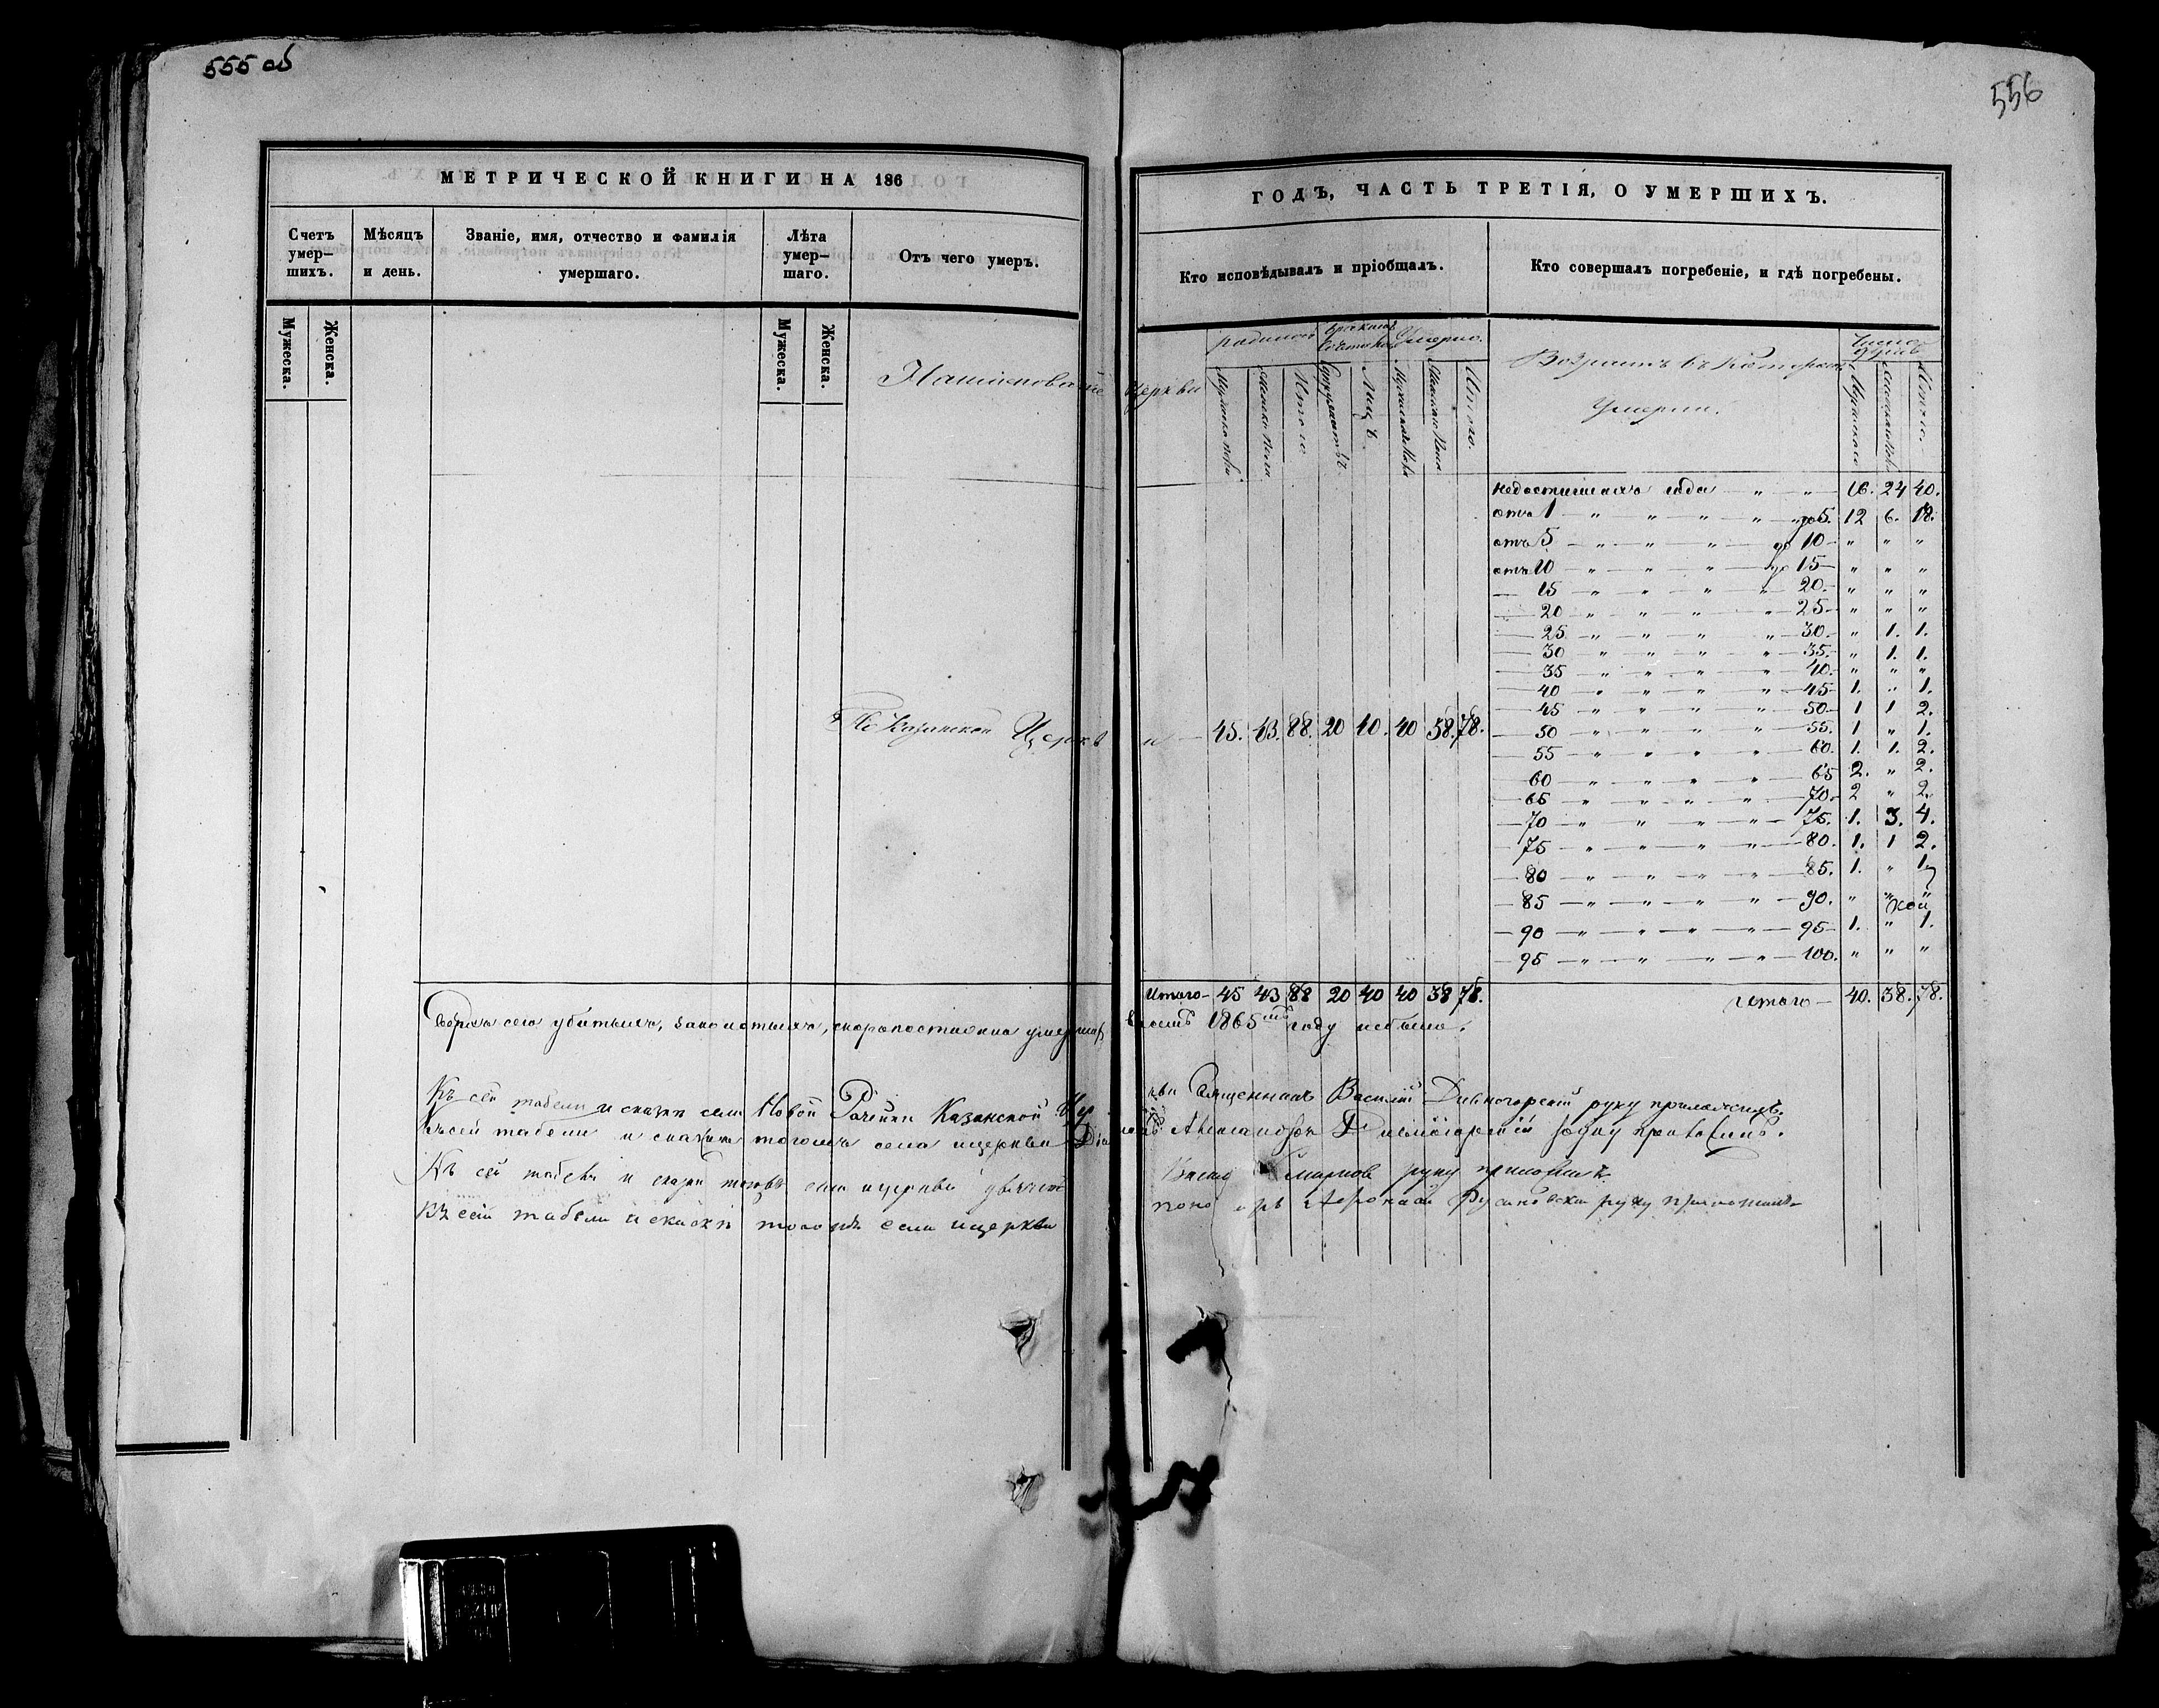 555 об
556
МЕТРИЧЕСКОЙ КНИГИ НА 186
ГОДЪ, ЧАСТЬ ТРЕТІЯ, О УМЕРШИХЪ.
Счетъ умер- шихъ.
Мѣсяцъ и день.
Званіе, имя, отчество и фамилія умершаго.
Лѣта умер- шаго.
Отъ чего умеръ.
Кто исповѣдывалъ и пріобщалъ.
Кто совершалъ погребеніе, и гдѣ погребены.
Мужеска.
Женска.
Мужеска.
Женска.
церкви
Итого
Лицъ.
Итого.
Возрастъ въ которомъ
Умерли.
Число душъ
Итого.
недостигшихъ года " " 16. 24 40.
отъ 1 — " " " " до 5. 12 6. 18.
отъ 5 — " " " до 10 — " " "
отъ 10 — " " " до 15 — " " "
— 15 — " " " " 20. — " " "
— 20 — " " " " 25 — " " "
— 25 — " " " " — 30. — " 1. 1.
— 30 — " " " " — 35. — " 1. 1.
— 35 — " " " " — 40. — " " "
— 40 — " " " " — 45 — 1. " 1.
— 45 — " " " " — 50. — 1 1 2.
— 50 — " " " " — 55. 1 " 1.
— 55 — " " " " — 60. 1. 1. 2.
— 60 — " " " " — 65 2. " 2.
— 65 — " " " " — 70. — 2 " 2.
— 70 — " " " " — 75. 1. 3. 4.
— 75 — " " " " — 80. 1. 1 2.
— 80 — " " " " — 85. 1. " 1
— 85 — " " " " — 90. " " "
— 90 — " " " " — 95 — 1. " 1.
— 95 — " " " " — 100. " " "
По Казанской Церкви — 45. 43. 88. 20 40. 40 38. 78.
Итого — 45 43 88 20 40 40 38 78.
Итого — 40. 38. 78.
Сверхъ сего убитыхъ, скоропостижно умершихъ въ семъ 1865мъ году небыло.
Къ сей табели и сказки села Новой Рачейки Казанской Церкви Священникъ Василій Дивногорскій руку приложилъ.
Къ сей табели и сказки тогожъ села и церкви Діаконъ Александръ Дивногорскій руку приложилъ.
Къ сей табели и сказки тогожъ села и церкви руку приложилъ.
Къ сей табели и сказки тогожъ села и церкви пономарь руку приложилъ